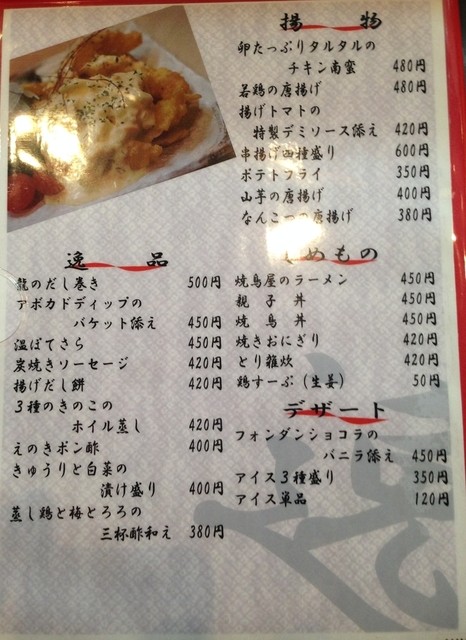 揚物
卵たっぷりタルタルの
チキン南蜜 480円
若鶏の唐揚げ 480円
揚げトマトの
特製デミソース添え 420円
串揚げ四種盛り 600円
ポテトフライ 350円
山芋の唐揚げ 400円
なんこつの唐揚げ 380円
逸品
龍のだし巻き 500円
アボカドディップの
バケット添え 450円
温ぽてさら 450円
炭焼きソーセージ 420円
揚げだし餅 420円
3種のきのこの
ホイル蒸し 420円
えのきポン酢 400円
きゅうりと白菜の
漬け盛り 400円
蒸し鶏と梅とろろの
三杯酢和え 380円
しめもの
焼鳥屋のラーメン 450円
親子丼 450円
焼鳥丼 450円
焼きおにぎり 420円
とり雑炊 420円
鶏すーぷ(生姜) 50円
デザート
フォンダンショコラの
バニラ添え 450円
アイス3種盛り 350円
アイス単品 120円